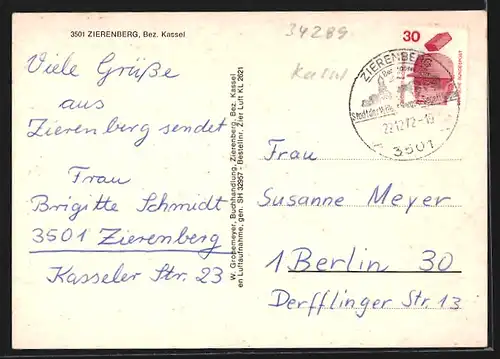 3501 ZIERENBERG, Bez. Kassel
34289
Kassel
Viele Grüße
aus
Zierenberg sendet
Frau
Brigitte Schmidt
3501 Zierenberg
Kasseler Str. 23
W. Grobemeyer, Buchhandlung, Zierenberg, Bez. Kassel
en Luftaufnahme, gen. SH 32957 - Bestellnr. Zier Luft KL 2621
30
ZIERENBERG
3501
Frau
Susanne Meyer
1 Berlin 30
Derfflinger Str. 13